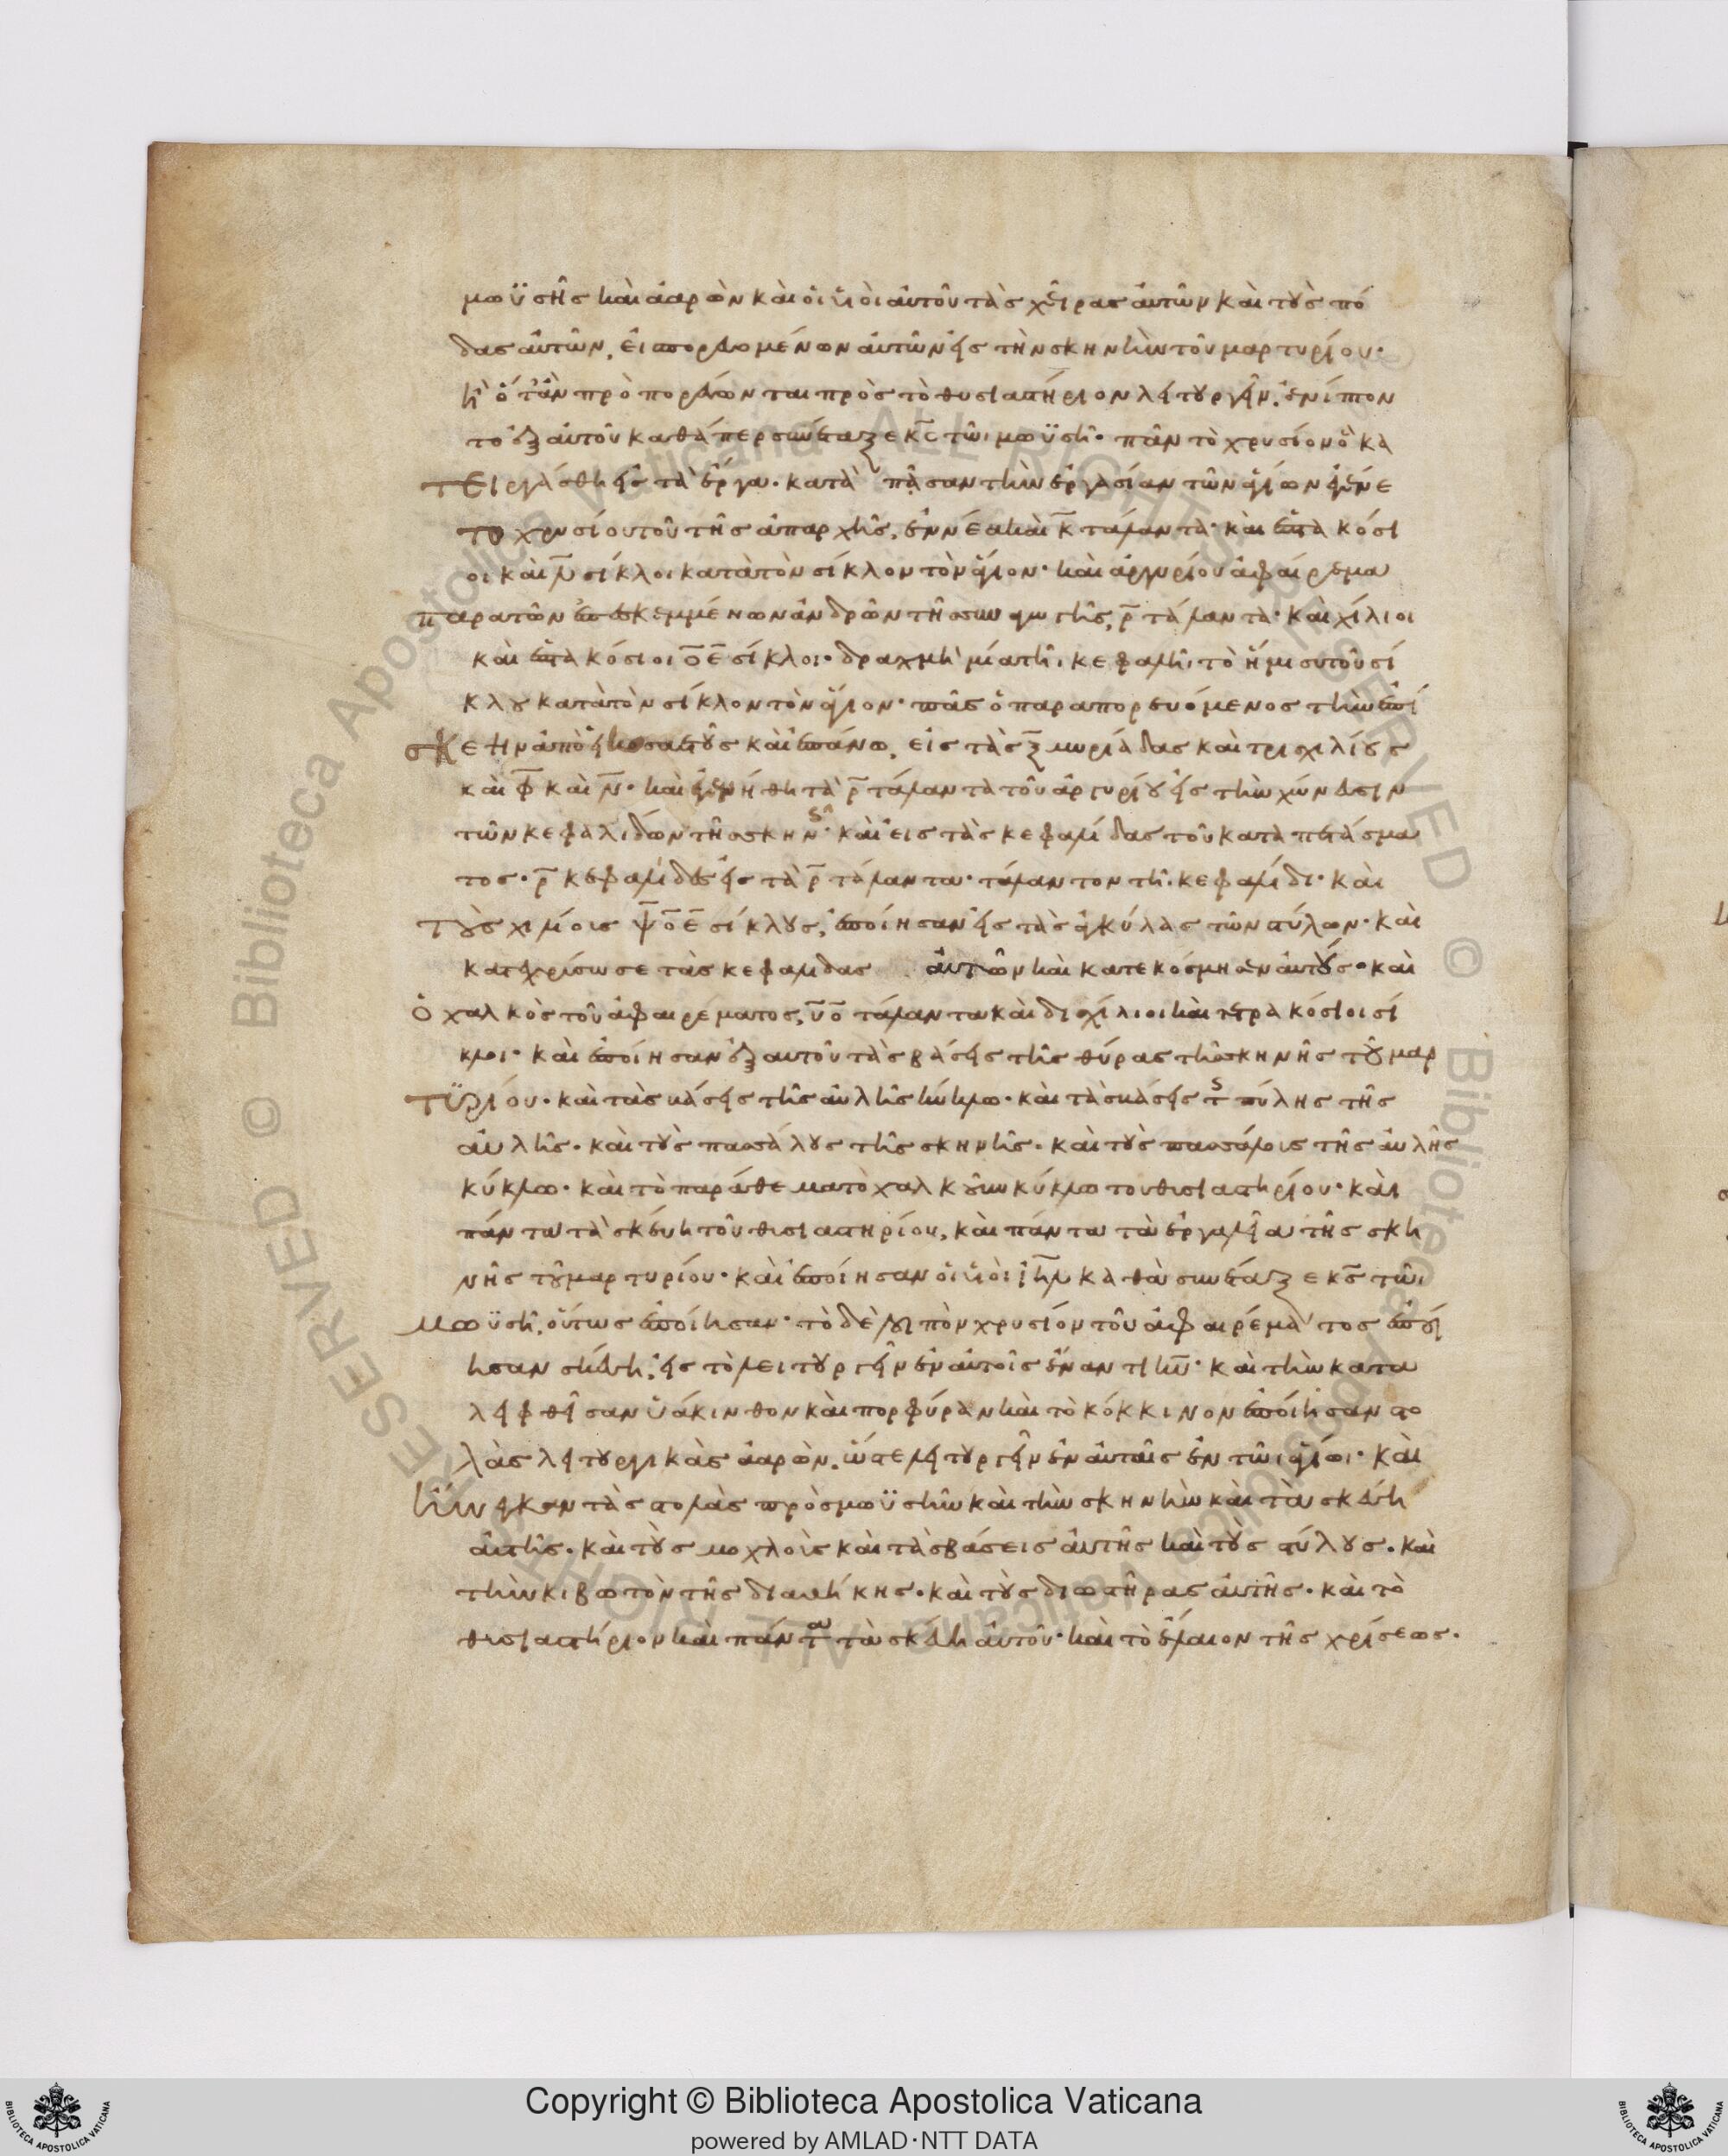 μωϋσῆς καὶ ἀαρὼν καὶ οἱ υἱοὶ αὐτοῦ τὰς χεῖρας αὐτῶν καὶ τοὺς πό
δας αὐτῶν, εἰσπορευομένων αὐτῶν εἰς τὴν σκηνὴν τοῦ μαρτυρίου·
ἢ ὅταν προσπορεύωνται πρὸς τὸ θυσιαστήριον λειτουργεῖν, ἐνίπτον
το ἐξ αὐτοῦ καθάπερ συνέταξε κ̅ς̅ τῶι μωϋσῆ· πᾶν τὸ χρυσίον ὃ κα
τειργάσθη εἰς τὰ ἔργα· κατὰ πᾶσαν τὴν ἐργασίαν τῶν ἁγίων ἐγένε
το χρυσίου τοῦ τῆς ἀπαρχῆς, ἐννέα καὶ κ̅ τάλαντα· καὶ ἑπτακόσι
οι καὶ ν̅ σίκλοι κατὰ τὸν σίκλον τὸν ἅγιον· καὶ ἀργυρίου ἀφαίρεμα
παρὰ τῶν ἐπεσκεμμένων ἀνδρῶν τῆς συναγωγῆς, ρ̅ τάλαντα· καὶ χίλιοι
καὶ ἑπτακόσιοι ο̅ε̅ σίκλοι· δραχμὴ μία τῆι κεφαλῆι τὸ ἥμισυ τοῦ σί
κλου κατὰ τὸν σίκλον τὸν ἅγιον· πᾶς ὁ παραπορευόμενος τὴν ἐπί
σκεψιν ἀπὸ εἰκοσαετοῦς καὶ ἐπάνω, εἰς τὰς ξ̅ μυριάδας καὶ τρισχιλίους
καὶ φ̅ καὶ ν̅· καὶ ἐγενήθη τὰ ρ̅ τάλαντα τοῦ ἀργυρίου εἰς τὴν χώνευσιν
τῶν κεφαλίδων τῆς σκην· καὶ εἰς τὰς κεφαλίδας τοῦ καταπετάσμα
τος· ρ̅ κεφαλίδες εἰς τὰ ρ̅ τάλαντα· τάλαντον τῆι κεφαλίδι· καὶ
τοὺς χιλίους ψ̅ο̅ε̅ σίκλους, ἐποίησαν εἰς τὰς ἀγκύλας τῶν στύλων· καὶ
κατεχρύσωσε τὰς κεφαλίδας αὐτῶν καὶ κατεκόσμησεν αὐτούς· καὶ
ὁ χαλκὸς τοῦ ἀφαιρέματος, υ̅ο̅ τάλαντα καὶ δισχίλιοι καὶ τετρακόσιοι σί
κλοι· καὶ ἐποίησαν ἐξ αὐτοῦ τὰς βάσεις τῆς θύρας τῆς σκηνῆς τοῦ μαρ
τυρίου· καὶ τὰς βάσεις τῆς αὐλῆς κύκλω· καὶ τὰς βάσεις τ πύλης τῆς
αὐλῆς· καὶ τοὺς πασσάλους τῆς σκηνῆς· καὶ τοὺς πασσάλους τῆς αὐλῆς
κύκλω· καὶ τὸ παράθεμα τὸ χαλκοῦν κύκλω τοῦ θυσιαστηρίου· καὶ
πάντα τὰ σκεύη τοῦ θυσιαστηρίου, καὶ πάντα τὰ ἐργαλεῖα τῆς σκη
νῆς τοῦ μαρτυρίου· καὶ ἐποίησαν οἱ υἱοὶ ι̅η̅λ̅ καθὰ συνέταξε κ̅ς̅ τῶι
μωϋσῆ, οὕτως ἐποίησαν· τὸ δὲ λοιπὸν χρυσίον τοῦ ἀφαιρέματος ἐποί
ησαν σκεύη, εἰς τὸ λειτουργεῖν ἐν αὐτοῖς ἔναντι κ̅υ̅· καὶ τὴν κατα
λειφθεῖσαν ὑάκινθον καὶ πορφύραν καὶ τὸ κόκκινον ἐποίησαν στο
λὰς λειτουργικὰς ἀαρὼν, ὥστε λειτουργεῖν ἐν αὐταῖς ἐν τῶι ἁγίωι· καὶ
ἤνεγκαν τὰς στολὰς πρὸς μωϋσῆν καὶ τὴν σκηνὴν καὶ τὰ σκεύη
αὐτῆς· καὶ τοὺς μοχλοὺς καὶ τὰς βάσεις αὐτῆς καὶ τοὺς στύλους· καὶ
τὴν κιβωτὸν τῆς διαθήκης· καὶ τοὺς διωστῆρας αὐτῆς· καὶ τὸ
θυσιαστήριον καὶ πάντα τὰ σκεύη αὐτοῦ· καὶ τὸ ἔλαιον τῆς χρίσεως·
Copyright © Biblioteca Apostolica Vaticana
powered by AMLAD·NTT DATA